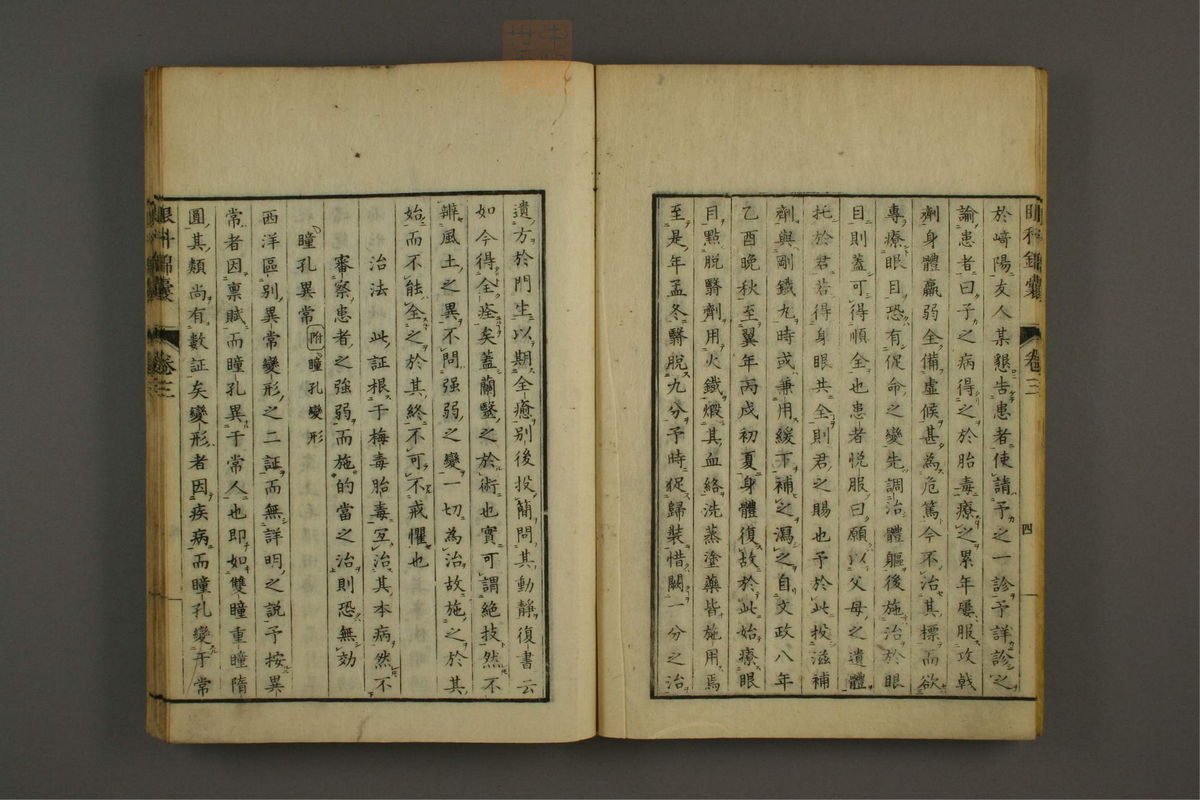 眼科錦囊 卷三 四
於﨑陽友人某懇告患者使請予之一診予詳診之
諭患者曰子之病得之於胎毒療之累年屢服攻戟
劑身體羸弱全備虛候甚為危篤今不治其標而欲
專療眼目恐有促命之變先調治體軀後施治於眼
目則蓋可得順全也患者悅服曰願以父母之遺體
托於君若得身眼共全則君之賜也予於此投滋補
劑與剛鐵丸時或兼用緩下補之瀉之自文政八年
乙酉晚秋至翼年丙戌初夏身體復故於此始療眼
目點脫翳劑用火鐵煅其血絡洗蒸塗藥皆施用焉
至是年孟冬翳脫九分予時促歸裝惜闕一分之治
遺方於門生以期全癒別後投簡問其動靜復書云
如今得全痊矣蓋蘭醫之於術也實可謂絕技然不
辨風土之異不問强弱之變一切為治故施之於其
始而不能全之於其終不可不戒懼也
治法 此証根于梅毒胎毒宐治其本病然不
審察患者之強弱而施的當之治則恐無効
瞳孔異常 附瞳孔變形
西洋區別異常變形之二証而無詳明之說予按異
常者因稟賦而瞳孔異于常人也即如雙瞳重瞳隋
圓其類尚有數証矣變形者因疾病而瞳孔變于常
眼科錦囊 卷三